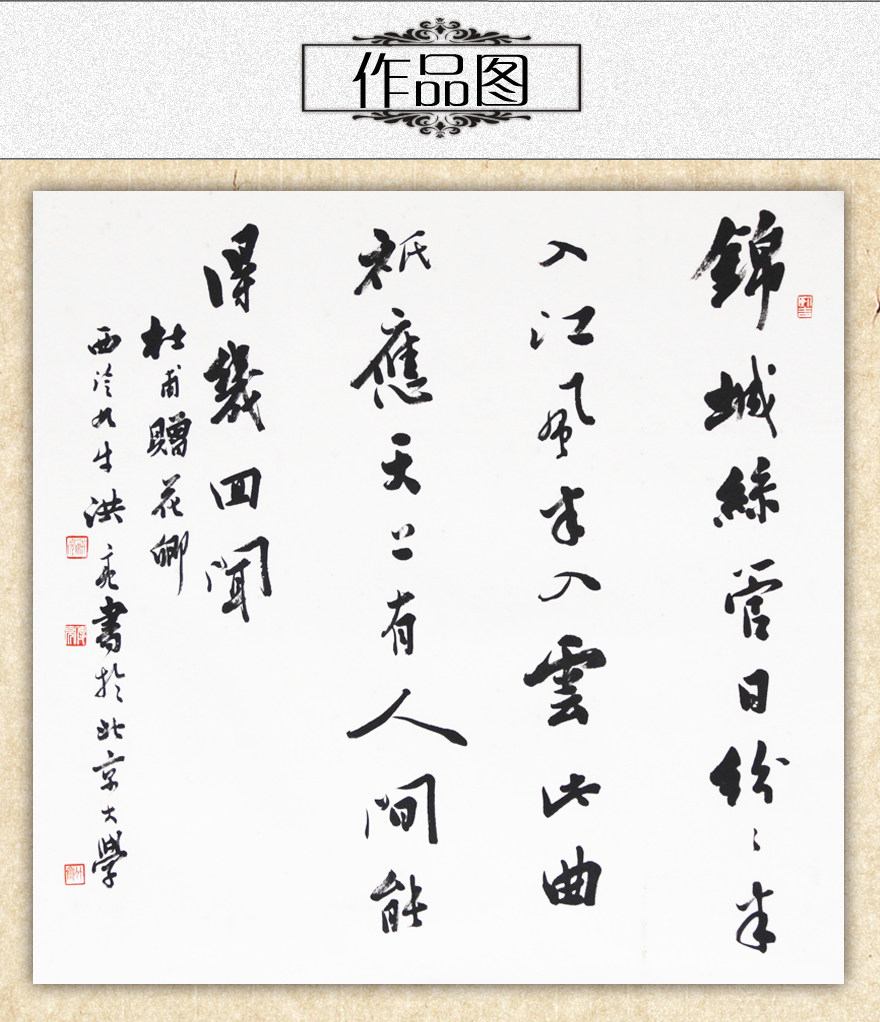 作品图
錦城絲管日紛〻半
入江風半入雲此曲
祇應天上有人間能
得幾回聞
杜甫贈花卿
西泠生洪亮書於北京大學